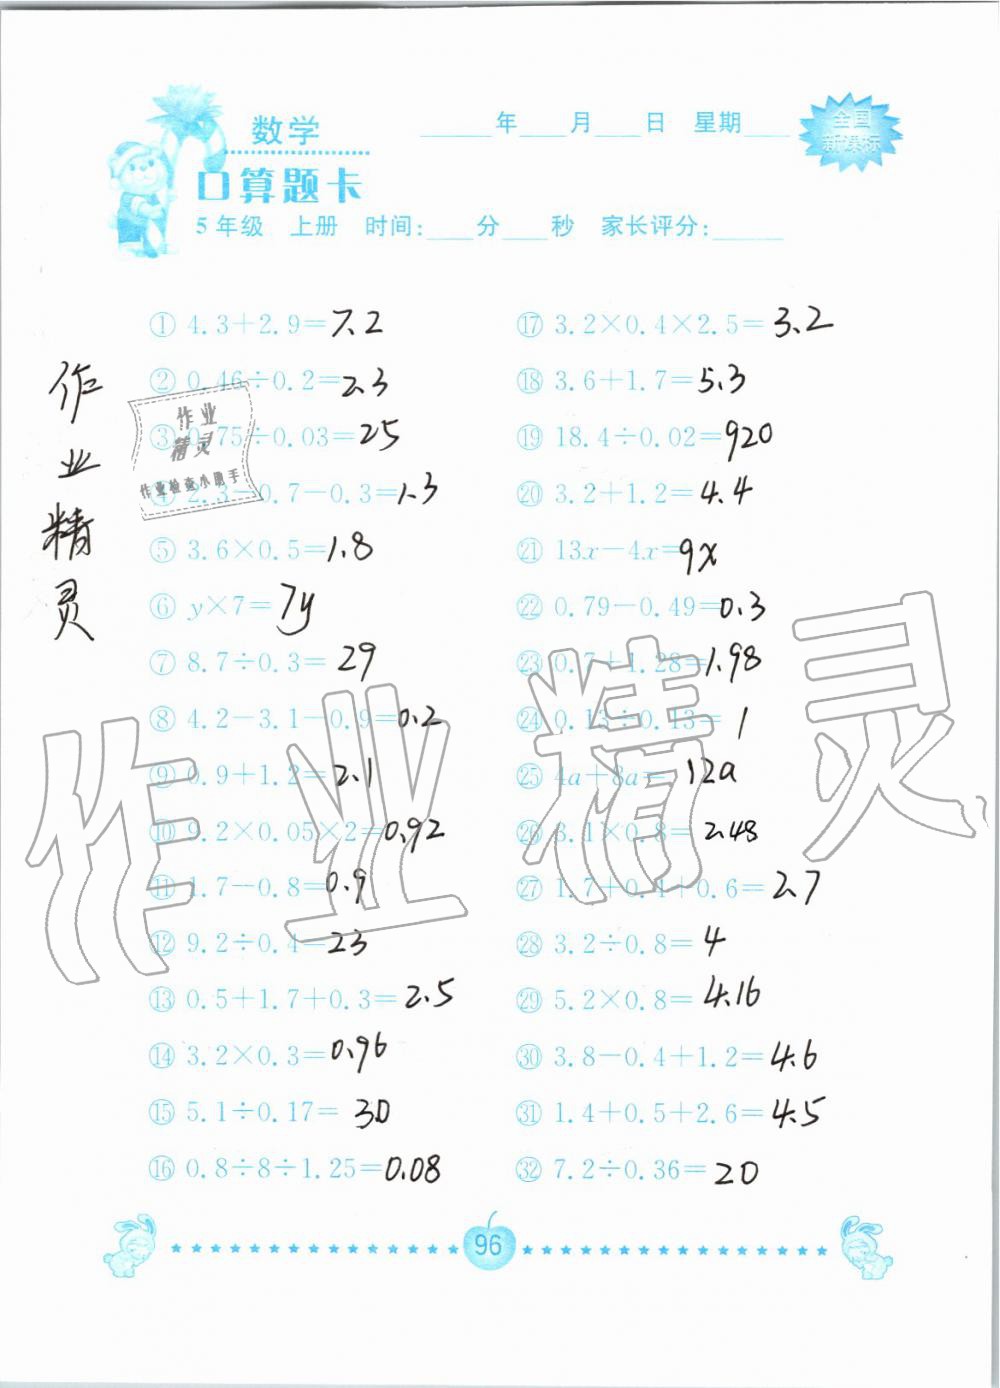 数学
口算题卡
____年___月___日 星期___
全国
新课标
5年级 上册 时间:___分___秒 家长评分:_____
① 4.3+2.9=7.2
② 0.46÷0.2=2.3
③ 0.75÷0.03=25
④ 2.3-0.7-0.3=1.3
⑤ 3.6×0.5=1.8
⑥ y×7=7y
⑦ 8.7÷0.3=29
⑧ 4.2-3.1-0.9=0.2
⑨ 0.9+1.2=2.1
⑩ 9.2×0.05×2=0.92
⑪ 1.7-0.8=0.9
⑫ 9.2÷0.4=23
⑬ 0.5+1.7+0.3=2.5
⑭ 3.2×0.3=0.96
⑮ 5.1÷0.17=30
⑯ 0.8÷8÷1.25=0.08
⑰ 3.2×0.4×2.5=3.2
⑱ 3.6+1.7=5.3
⑲ 18.4÷0.02=920
⑳ 3.2+1.2=4.4
㉑ 13x-4x=9x
㉒ 0.79-0.49=0.3
㉓ 0.7+1.28=1.98
㉔ 0.13÷0.13=1
㉕ 4a+8a=12a
㉖ 3.1×0.8=2.48
㉗ 1.7+0.4+0.6=2.7
㉘ 3.2÷0.8=4
㉙ 5.2×0.8=4.16
㉚ 3.8-0.4+1.2=4.6
㉛ 1.4+0.5+2.6=4.5
㉜ 7.2÷0.36=20
作业精灵
作业
精灵
作业检查小助手
作业精灵
96